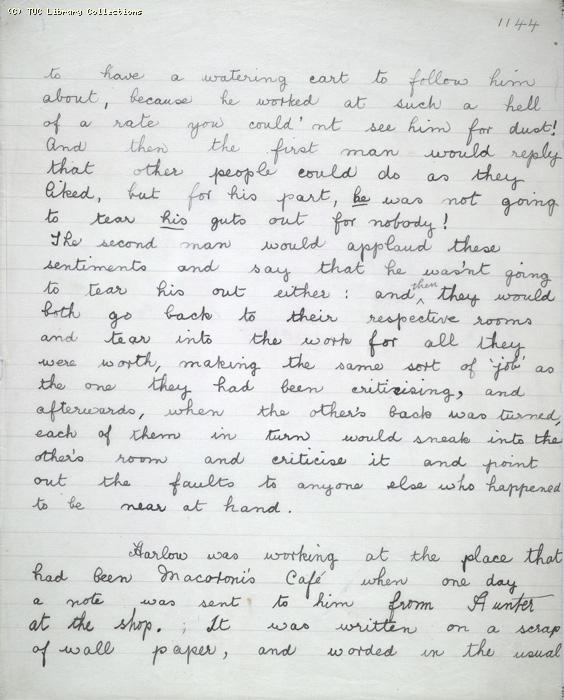 (C) TUC Library Collections
1144
to have a watering cart to follow him
about, because he worked at such a hell
of a rate you could'nt see him for dust!
And then the first man would reply
that other people could do as they
liked, but for his part, he was not going
to tear his guts out for nobody!
The second man would applaud these
sentiments and say that he wasn't going
to tear his out either : and then they would
both go back to their respective rooms
and tear into the work for all they
were worth, making the same sort of 'job' as
the one they had been criticising, and
afterwards, when the other's back was turned,
each of them in turn would sneak into the
other's room and criticise it and point
out the faults to anyone else who happened
to be near at hand.
Harlow was working at the place that
had been Macoroni's Café when one day
a note was sent to him from Hunter
at the shop. ; It was written on a scrap
of wall paper, and worded in the usual